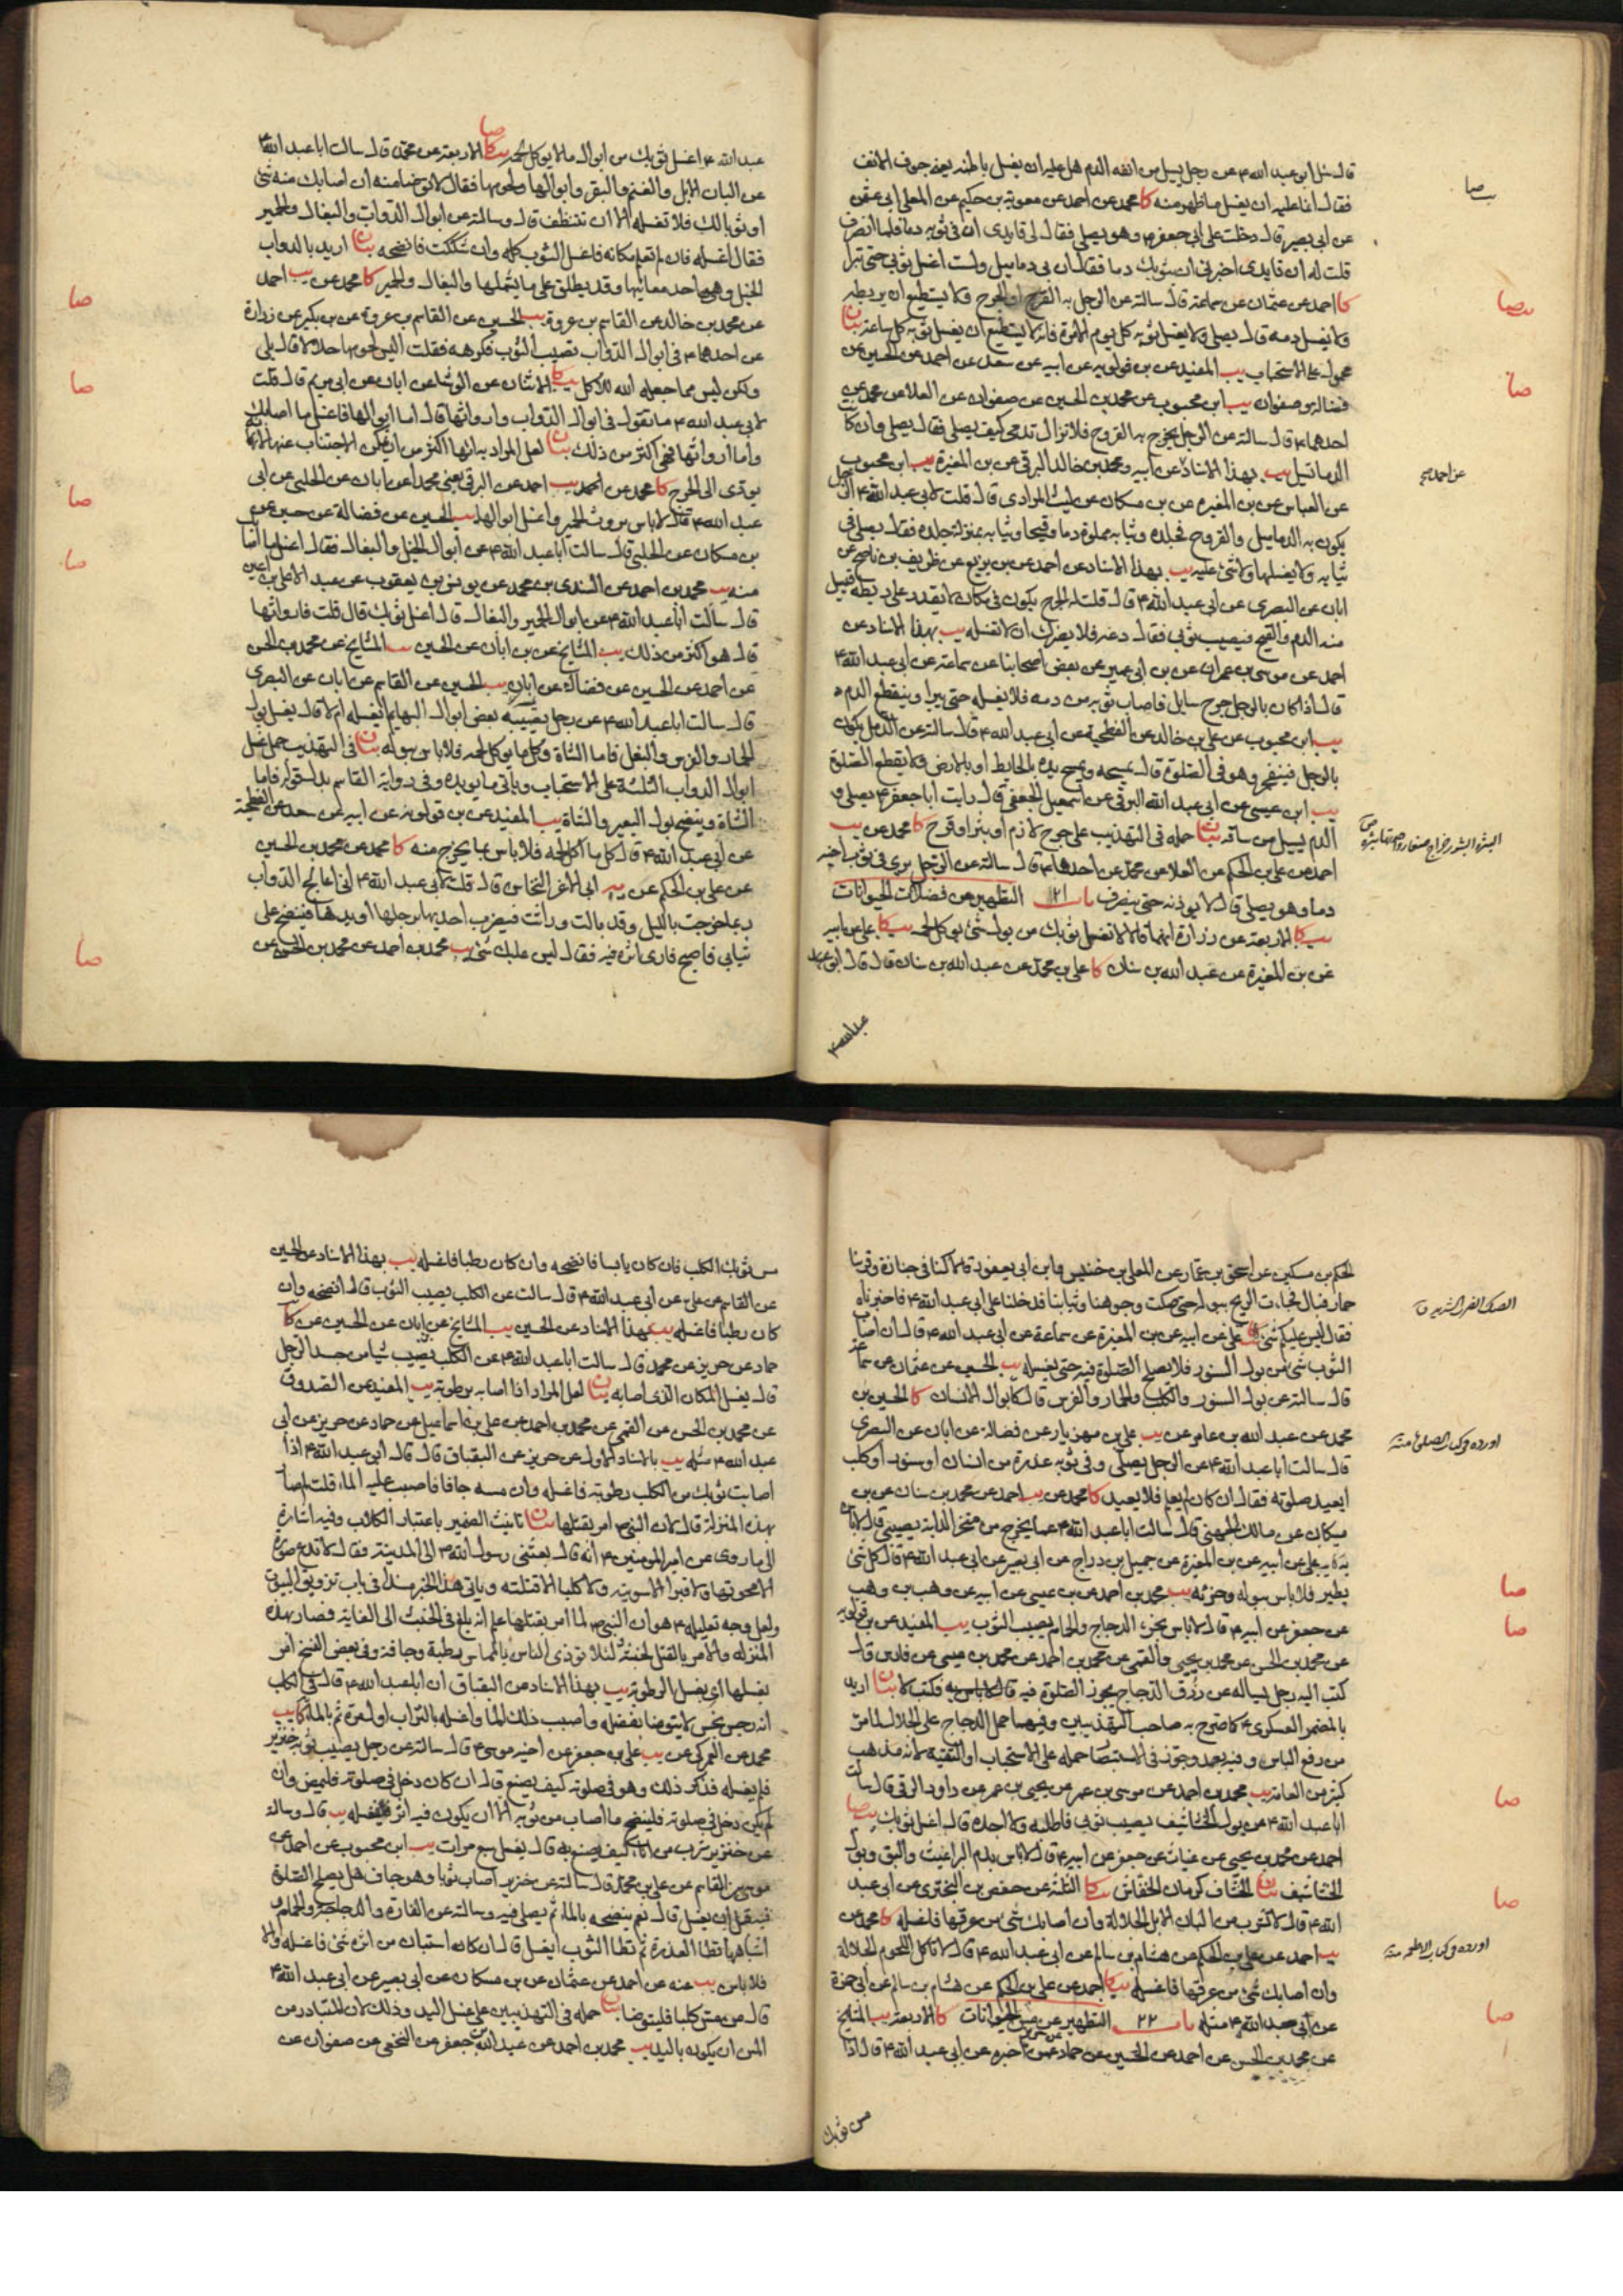 قال سئل ابو عبد الله ع عن رجل يسيل من انفه الدم هل عليه ان يغسل باطنه يعني جوف الانف
فقال انما عليه ان يغسل ما ظهر منه كا محمد عن احمد عن معوية بن حكيم عن المعلى ابي عثمن
عن ابي بصير قال دخلت على ابي جعفر ع وهو يصلي فقال لي قايدي ان في ثوبه دما فلما انصرف
قلت له ان قايدي اخبرني ان بثوبك دما فقال ان بي دماميل ولست اغسل ثوبي حتى تبرا
كا احمد عن عثمان عن سماعة قال سالته عن الرجل به القرح او الجرح ولا يستطيع ان يربطه
ولا يغسل دمه قال يصلي ولا يغسل ثوبه كل يوم الا مرة فانه لا يستطيع ان يغسل ثوبه كل ساعة بيان
محمول على الاستحباب يب المفيد عن بن قولويه عن ابيه عن سعد عن احمد عن الحسين عن
فضالة وصفوان يب ابن محبوب عن محمد بن الحسين عن صفوان عن العلا عن محمد عن
احدهما ع قال سالته عن الرجل يخرج به القروح فلا تزال تدمى كيف يصلي فقال يصلي وان كانت
الدما تسيل يب بهذا الاسناد عن ابيه ومحمد بن خالد البرقي عن بن المغيرة يب ابن محبوب
عن العباس عن بن المغيرة عن بن مسكان عن ليث المرادي قال قلت لابي عبد الله ع الرجل
يكون به الدماميل والقروح فجلده وثيابه مملوة دما وقيحا وثيابه بمنزلة جلده فقال يصلي في
ثيابه ولا يغسلها ولا شئ عليه يب بهذا الاسناد عن احمد عن بن بزيع عن ظريف بن ناصح عن
ابان عن البصري عن ابي عبد الله ع قال قلت له الجرح يكون في مكان لا يقدر على ربطه فيسيل
منه الدم والقيح فيصيب ثوبي فقال دعه فلا يضرك ان لا تغسله يب بهذا الاسناد عن
احمد عن موسى بن عمران عن بن ابي عمير عن بعض اصحابنا عن سماعة عن ابي عبد الله ع
قال اذا كان بالرجل جرح سايل فاصاب ثوبه من دمه فلا يغسله حتى يبرا وينقطع الدم
يب ابن محبوب عن علي بن خالد عن الفطحية عن ابي عبد الله ع قال سالته عن الدمل يكون
بالرجل فينفجر وهو في الصلوة قال يمسحه ويمسح يده بالحايط او بالارض ولا يقطع الصلوة
يب ابن عيسى عن ابي عبد الله البرقي عن اسمعيل الجعفي قال رايت ابا جعفر ع يصلي و
الدم يسيل من ساقه بيان حمله في التهذيب على جرح لازم او بثر او قرح كا محمد عن يب
احمد عن علي بن الحكم عن العلا عن محمد عن احدهما ع قال سالته عن الرجل يرى في ثوب اخيه
دما وهو يصلي قال لا يوذنه حتى ينصرف باب ٢١ التطهير من فضلات الحيوانات
يب كا الاربعة عن زرارة انهما قالا لا تغسل ثوبك من بول شئ يوكل لحمه يب كا علي عن ابيه
عن بن المغيرة عن عبد الله بن سنان كا علي بن محمد عن عبد الله بن سنان قال قال ابو عبد
عبد الله ع
عن احمد صح
عبد الله ع اغسل ثوبك من ابوال ما لا يوكل لحمه يب كا الاربعة عن محمد قال سالت ابا عبد الله ع
عن البان الابل والغنم والبقر وابوالها ولحومها فقال لا توضا منه ان اصابك منه شئ
او ثوبا لك فلا تغسله الا ان تتنظف قال وسالته عن ابوال الدواب والبغال والحمير
فقال اغسله فان لم تعلم مكانه فاغسل الثوب كله وان شككت فانضحه بيان اريد بالدواب
الخيل وهو احد معانيها وقد يطلق على ما يشملها والبغال والحمير كا محمد عن يب احمد
عن محمد بن خالد عن القاسم بن عروة يب الحسين عن القاسم بن عروة عن بن بكير عن زرارة
عن احدهما ع في ابوال الدواب تصيب الثوب فكرهه فقلت اليس لحومها حلالا قال بلى
ولكن ليس مما جعله الله للاكل يب كا الاثنان عن الوشا عن ابان عن ابي مريم قال قلت
لابي عبد الله ع ما تقول في ابوال الدواب وارواثها قال اما ابوالها فاغسل ما اصابك
واما ارواثها فهي اكثر من ذلك بيان لعل المراد به انها اكثر من ان يمكن الاجتناب عنها لانه
يودي الى الحرج كا محمد عن احمد يب احمد عن البرقي يعني محمدا عن ابان عن الحلبي عن ابي
عبد الله ع قال لا باس بروث الحمير واغسل ابوالها يب الحسين عن فضالة عن حسين عن
بن مسكان عن الحلبي قال سالت ابا عبد الله ع عن ابوال الخيل والبغال فقال اغسل ما اصابك
منه يب محمد بن احمد عن السندي بن محمد عن يونس بن يعقوب عن عبد الاعلى بن اعين
قال سالت ابا عبد الله ع عن ابوال الحمير والبغال قال اغسل ثوبك قال قلت فارواثها
قال هو اكثر من ذلك يب المشايخ عن بن ابان عن الحسين يب المشايخ عن محمد بن الحسن
عن احمد عن الحسين عن فضالة عن ابان يب الحسين عن القاسم عن ابان عن البصري
قال سالت ابا عبد الله ع عن رجل يصيبه بعض ابوال البهايم ايغسله ام لا قال يغسل بول
الحمار والفرس والبغل فاما الشاة وكل ما يوكل لحمه فلا باس ببوله بيان في التهذيب حمل غسل
ابوال الدواب الثلثة على الاستحباب وياتي ما يويده وفي رواية القاسم بدل قوله فاما
الشاة وينضح بول البعير والشاة يب المفيد عن بن قولويه عن ابيه عن سعد عن الفطحية
عن ابي عبد الله ع قال كل ما اكل لحمه فلا باس بما يخرج منه كا محمد عن محمد بن الحسين
عن علي بن الحكم عن يب ابي الاغر النخاس قال قلت لابي عبد الله ع اني اعالج الدواب
ربما خرجت بالليل وقد بالت وراثت فيضرب احدها برجلها او يدها فينضح على
ثيابي فاصبح فارى اثره فيه فقال ليس عليك شئ يب محمد بن احمد عن محمد بن الحسين عن
الحكم بن مسكين عن اسحق بن عمار عن المعلى بن خنيس وابن ابي يعفور قالا كنا في جنازة وقربنا
حمار فبال فجاءت الريح ببوله حتى صكت وجوهنا وثيابنا فدخلنا على ابي عبد الله ع فاخبرناه
فقال ليس عليكم شئ كا علي عن ابيه عن بن المغيرة عن سماعة عن ابي عبد الله ع قال ان اصاب
الثوب شئ من بول السنور فلا يصلح الصلوة فيه حتى يغسله يب الحسين عن عثمان عن سماعة
قال سالته عن بول السنور والكلب والحمار والفرس قال كابوال الانسان كا الحسين بن
محمد عن عبد الله بن عامر عن يب علي بن مهزيار عن فضالة عن ابان عن البصري
قال سالت ابا عبد الله ع عن الرجل يصلي وفي ثوبه عذرة من انسان او سنور او كلب
ايعيد صلوته فقال ان كان لم يعلم فلا يعيد كا محمد عن يب احمد عن محمد بن سنان عن بن
مسكان عن مالك الجهني قال سالت ابا عبد الله ع عما يخرج من منخر الدابة يصيبني قال لا باس
به كا يب علي عن ابيه عن بن المغيرة عن جميل بن دراج عن ابي بصير عن ابي عبد الله ع قال كل شئ
يطير فلا باس ببوله وخرئه يب محمد بن احمد عن بن عيسى عن ابيه عن وهب بن وهب
عن جعفر عن ابيه ع قال لا باس بخرء الدجاج والحمام يصيب الثوب يب المفيد عن بن قولويه
عن محمد بن الحسن عن محمد بن يحيى والقمي عن محمد بن احمد عن محمد بن عيسى عن فارس قال
كتب اليه رجل يساله عن ذرق الدجاج يجوز الصلوة فيه فكتب لا بيان اريد
بالمضمر العسكري ع كما صرح به صاحب التهذيبين وفيهما حمل الدجاج على الجلال لما مر
من رفع الباس وفيه بعد وجوز في الاستبصار حمله على الاستحباب او التقية لانه مذهب
كثير من العامة يب محمد بن احمد عن موسى بن عمر عن يحيى بن عمر عن داود الرقي قال سالت
ابا عبد الله ع عن بول الخشاشيف يصيب ثوبي فاطلبه ولا اجده قال اغسل ثوبك يب
احمد عن محمد بن يحيى عن غياث عن جعفر عن ابيه ع قال لا باس بدم البراغيث والبق وبول
الخشاشيف بيان الخشاف كرمان الخفاش يب كا الثلثة عن حفص بن البختري عن ابي عبد
الله ع قال لا تشرب من البان الابل الجلالة وان اصابك شئ من عرقها فاغسله كا محمد عن
يب احمد عن علي بن الحكم عن هشام بن سالم عن ابي عبد الله ع قال لا تاكل اللحوم الجلالة
وان اصابك شئ من عرقها فاغسله يب كا احمد عن علي بن الحكم عن هشام بن سالم عن ابي حمزة
عن ابي عبد الله ع مثله باب ٢٢ التطهير من مس الحيوانات كا الاربعة يب المشايخ
عن محمد بن الحسن عن احمد عن الحسين عن حماد عمن اخبره عن ابي عبد الله ع قال اذا
من ثوبك
اورده في كتاب الصلوة منه
اورده في كتاب الاطعمه منه
مس ثوبك الكلب فان كان يابسا فانضحه وان كان رطبا فاغسله يب بهذا الاسناد عن الحسين
عن القاسم عن علي عن ابي عبد الله ع قال سالت عن الكلب يصيب الثوب قال انضحه وان
كان رطبا فاغسله يب بهذا الاسناد عن الحسين يب المشايخ عن بن ابان عن الحسين عن كا
حماد عن حريز عن محمد قال سالت ابا عبد الله ع عن الكلب يصيب شيئا من جسد الرجل
قال يغسل المكان الذي اصابه بيان لعل المراد اذا اصابه برطوبة يب المفيد عن الصدوق
عن محمد بن الحسن عن القمي عن محمد بن احمد عن علي بن اسماعيل عن حماد عن حريز عن ابي
عبد الله ع مثله يب بالاسناد الاول عن حريز عن البقباق قال قال ابو عبد الله ع اذا
اصابت ثوبك من الكلب رطوبة فاغسله وان مسه جافا فاصبب عليه الماء قلت لم صار
بهذه المنزلة قال لان النبي ص امر بقتلها بيان تانيث الضمير باعتبار الكلاب وفيه اشارة
الى ما روى عن امير المومنين ع انه قال بعثني رسول الله ص الى المدينة فقال لا تدع صورة
الا محوتها ولا قبرا الا سويته ولا كلبا الا قتلته وياتي هذا الخبر مسندا في باب تزويق البيوت
ولعل وجه تعليله ع هو ان النبي ص لما امر بقتلها علم انه بلغ في الخبث الى الغاية فصار بهذه
المنزلة والامر بالقتل لخبثه ولئلا توذي الناس بالمماسة رطبة وجافة وفي بعض النسخ امر
بغسلها اي بغسل الرطوبة يب بهذا الاسناد عن البقباق ان ابا عبد الله ع قال في الكلب
انه رجس نجس لا يتوضا بفضله واصبب ذلك الماء واغسله بالتراب اول مرة ثم بالماء كا يب
محمد عن العمركي عن يب علي بن جعفر عن اخيه موسى ع قال سالته عن رجل يصيب ثوبه خنزير
فلم يغسله فذكر ذلك وهو في صلوته كيف يصنع قال ان كان دخل في صلوته فليمض وان
لم يكن دخل في صلوته فلينضح ما اصاب من ثوبه الا ان يكون فيه اثر فيغسله يب قال وسالته
عن خنزير شرب من اناء كيف يصنع به قال يغسل سبع مرات يب ابن محبوب عن احمد عن
موسى بن القاسم عن علي بن محمد قال سالته عن خنزير اصاب ثوبا وهو جاف هل يصلح الصلوة
فيه قبل ان يغسل قال نعم ينضحه بالماء ثم يصلي فيه وسالته عن الفارة والدجاجة والحمام و
اشباهها تطا العذرة ثم تطا الثوب ايغسل قال ان كان استبان من اثره شئ فاغسله والا
فلا باس يب عنه عن احمد عن عثمان عن بن مسكان عن ابي بصير عن ابي عبد الله ع
قال من مس كلبا فليتوضا بيان حمله في التهذيبين على غسل اليد وذلك لان المتبادر من
المس ان يكون باليد يب محمد بن احمد عن عبد الله بن جعفر عن النخعي عن صفوان عن